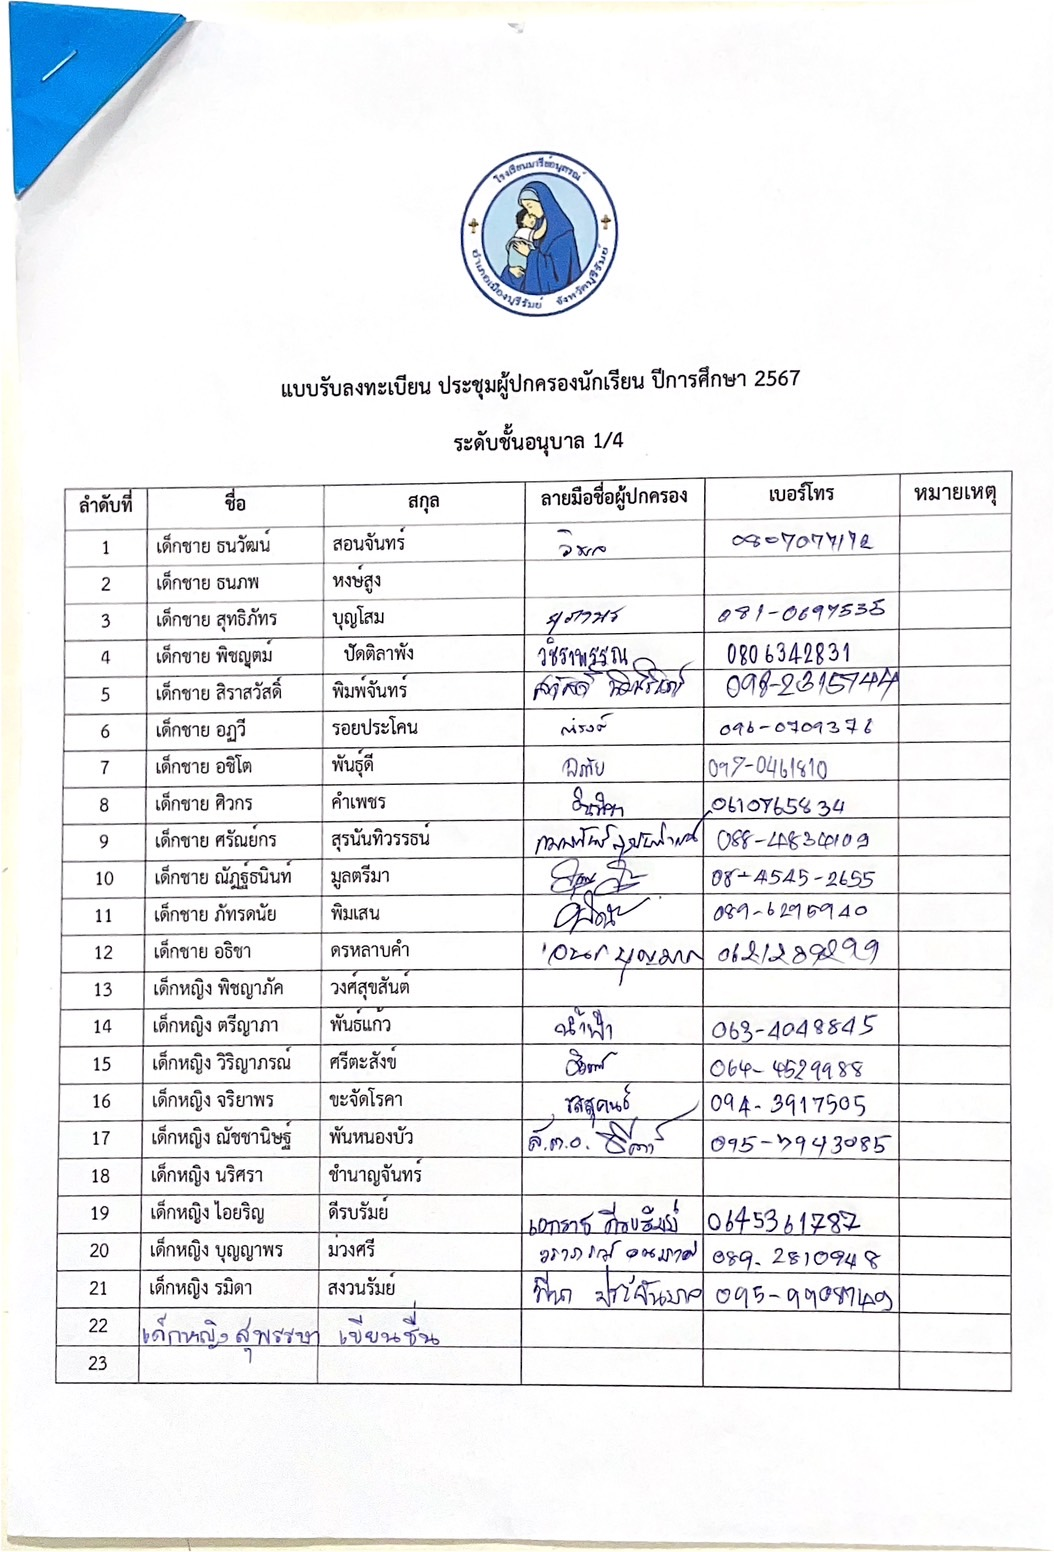 โรงเรียนมารีย์อนุสรณ์
อำเภอเมืองบุรีรัมย์ จังหวัดบุรีรัมย์
แบบรับลงทะเบียน ประชุมผู้ปกครองนักเรียน ปีการศึกษา 2567
ระดับชั้นอนุบาล 1/4
ลำดับที่ ชื่อ สกุล ลายมือชื่อผู้ปกครอง เบอร์โทร หมายเหตุ
1 เด็กชาย ธนวัฒน์ สอนจันทร์
2 เด็กชาย ธนภพ หงษ์สูง
3 เด็กชาย สุทธิภัทร บุญโสม 081-0697535
4 เด็กชาย พิชญุตม์ ปัดติลาพัง วัชราพรรณ 0806342831
5 เด็กชาย สิราสวัสดิ์ พิมพ์จันทร์ 098-2315744
6 เด็กชาย อฏวี รอยประโคน ณรงค์ 096-0709376
7 เด็กชาย อชิโต พันธุ์ดี 097-0461810
8 เด็กชาย ศิวกร คำเพชร 0610765834
9 เด็กชาย ศรัณย์กร สุรนันทิวรรธน์ 088-4834109
10 เด็กชาย ณัฏฐ์ธนินท์ มูลตรีมา 08-4545-2655
11 เด็กชาย ภัทรดนัย พิมเสน 089-6295940
12 เด็กชาย อธิชา ดรหลาบคำ
13 เด็กหญิง พิชญาภัค วงศ์สุขสันต์
14 เด็กหญิง ตรีญาภา พันธ์แก้ว น้ำฟ้า 063-4048845
15 เด็กหญิง วิริญาภรณ์ ศรีตะสังข์ 064-4529988
16 เด็กหญิง จริยาพร ขะจัดโรคา รสสุคนธ์ 094-3917505
17 เด็กหญิง ณัชชานิษฐ์ พันหนองบัว ส.ต.อ. 095-7943085
18 เด็กหญิง นริศรา ชำนาญจันทร์
19 เด็กหญิง ไอยริญ ดีรบรัมย์ เอกราช ดีรบรัมย์ 0645361787
20 เด็กหญิง บุญญาพร ม่วงศรี 089-2810948
21 เด็กหญิง รมิดา สงวนรัมย์
22 เด็กหญิง สุพรรษา เขียนชื่น
23